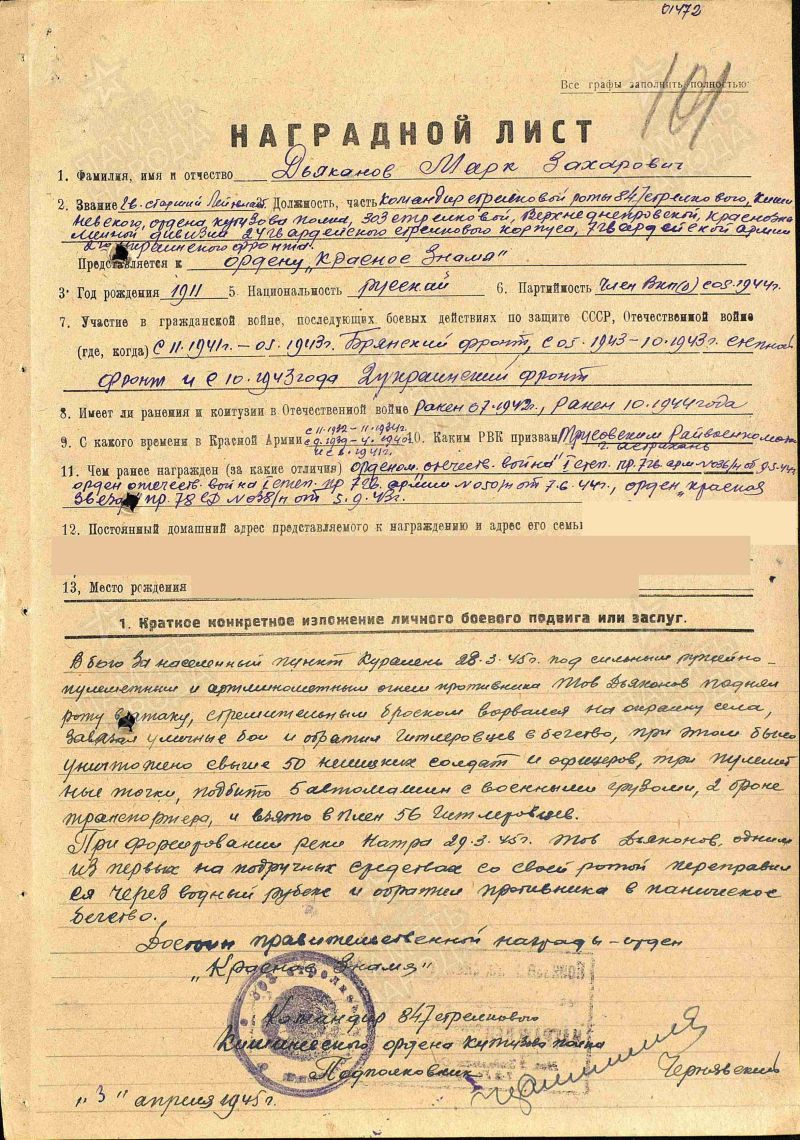 01472
Все графы заполнить полностью
101
НАГРАДНОЙ ЛИСТ
1. Фамилия, имя и отчество Дьяканов Марк Захарович
2. Звание Гв. старший Лейтенант Должность, часть Командир стрелковой роты 847 стрелкового, Киши
невского, ордена Кутузова полка, 303 стрелковой, Верхнеднепровской, Краснозна
менной дивизии 24 гвардейского стрелкового корпуса, 7 гвардейской армии
2го украинского фронта.
Представляется к ордену „Красное Знамя"
3. Год рождения 1911 5. Национальность русский 6. Партийность Член ВКП(б) с 05.1944г.
7. Участие в гражданской войне, последующих боевых действиях по защите СССР, Отечественной войне
(где, когда) с 11.1941г. – 05.1943г. Брянский фронт, с 05.1943–10.1943г. степной
фронт и с 10.1943 года 2 украинский фронт
8. Имеет ли ранения и контузии в Отечественной войне ранен 07.1942г., ранен 10.1944 года
с 11.1932 – 11.1934г.
9. С какого времени в Красной Армии с 9.1939 – 4.1940 10. Каким РВК призван Трусовским Райвоенкоматом
и с 6.1941г. г. Астрахань
11. Чем ранее награжден (за какие отличия) орденом „отечеств. война" I степ. пр. 7 гв. арм №036/н от 9.5.44г.
орден отечеств. война I степ. пр 7 гв. армии №050/н от 7.6.44г., орден „Красная
Звезда" пр. 78 СД №038/н от 5.9.43г.
12. Постоянный домашний адрес представляемого к награждению и адрес его семьи
13, Место рождения
1. Краткое конкретное изложение личного боевого подвига или заслуг.
В бою за населенный пункт Куралень 28.3.45г. под сильным ружейно-
пулеметным и артминометным огнем противника Тов Дьяконов поднял
роту в атаку, стремительным броском ворвался на окраину села,
завязал уличные бои и обратил гитлеровцев в бегство, при этом было
уничтожено свыше 50 немецких солдат и офицеров, три пулемет
ные точки, подбито 5 автомашин с военными грузами, 2 броне
транспортера, и взято в плен 56 гитлеровцев.
При форсировании реки Натра 29.3.45г. тов Дьяконов, одним
из первых на подручных средствах со своей ротой переправил
ся через водный рубеж и обратил противника в паническое
бегство.
Достоин правительственной награды – орден
„Красное Знамя"
Командир 847 стрелкового
Кишиневского ордена Кутузова полка
Подполковник Чернявский
„3" апреля 1945г.